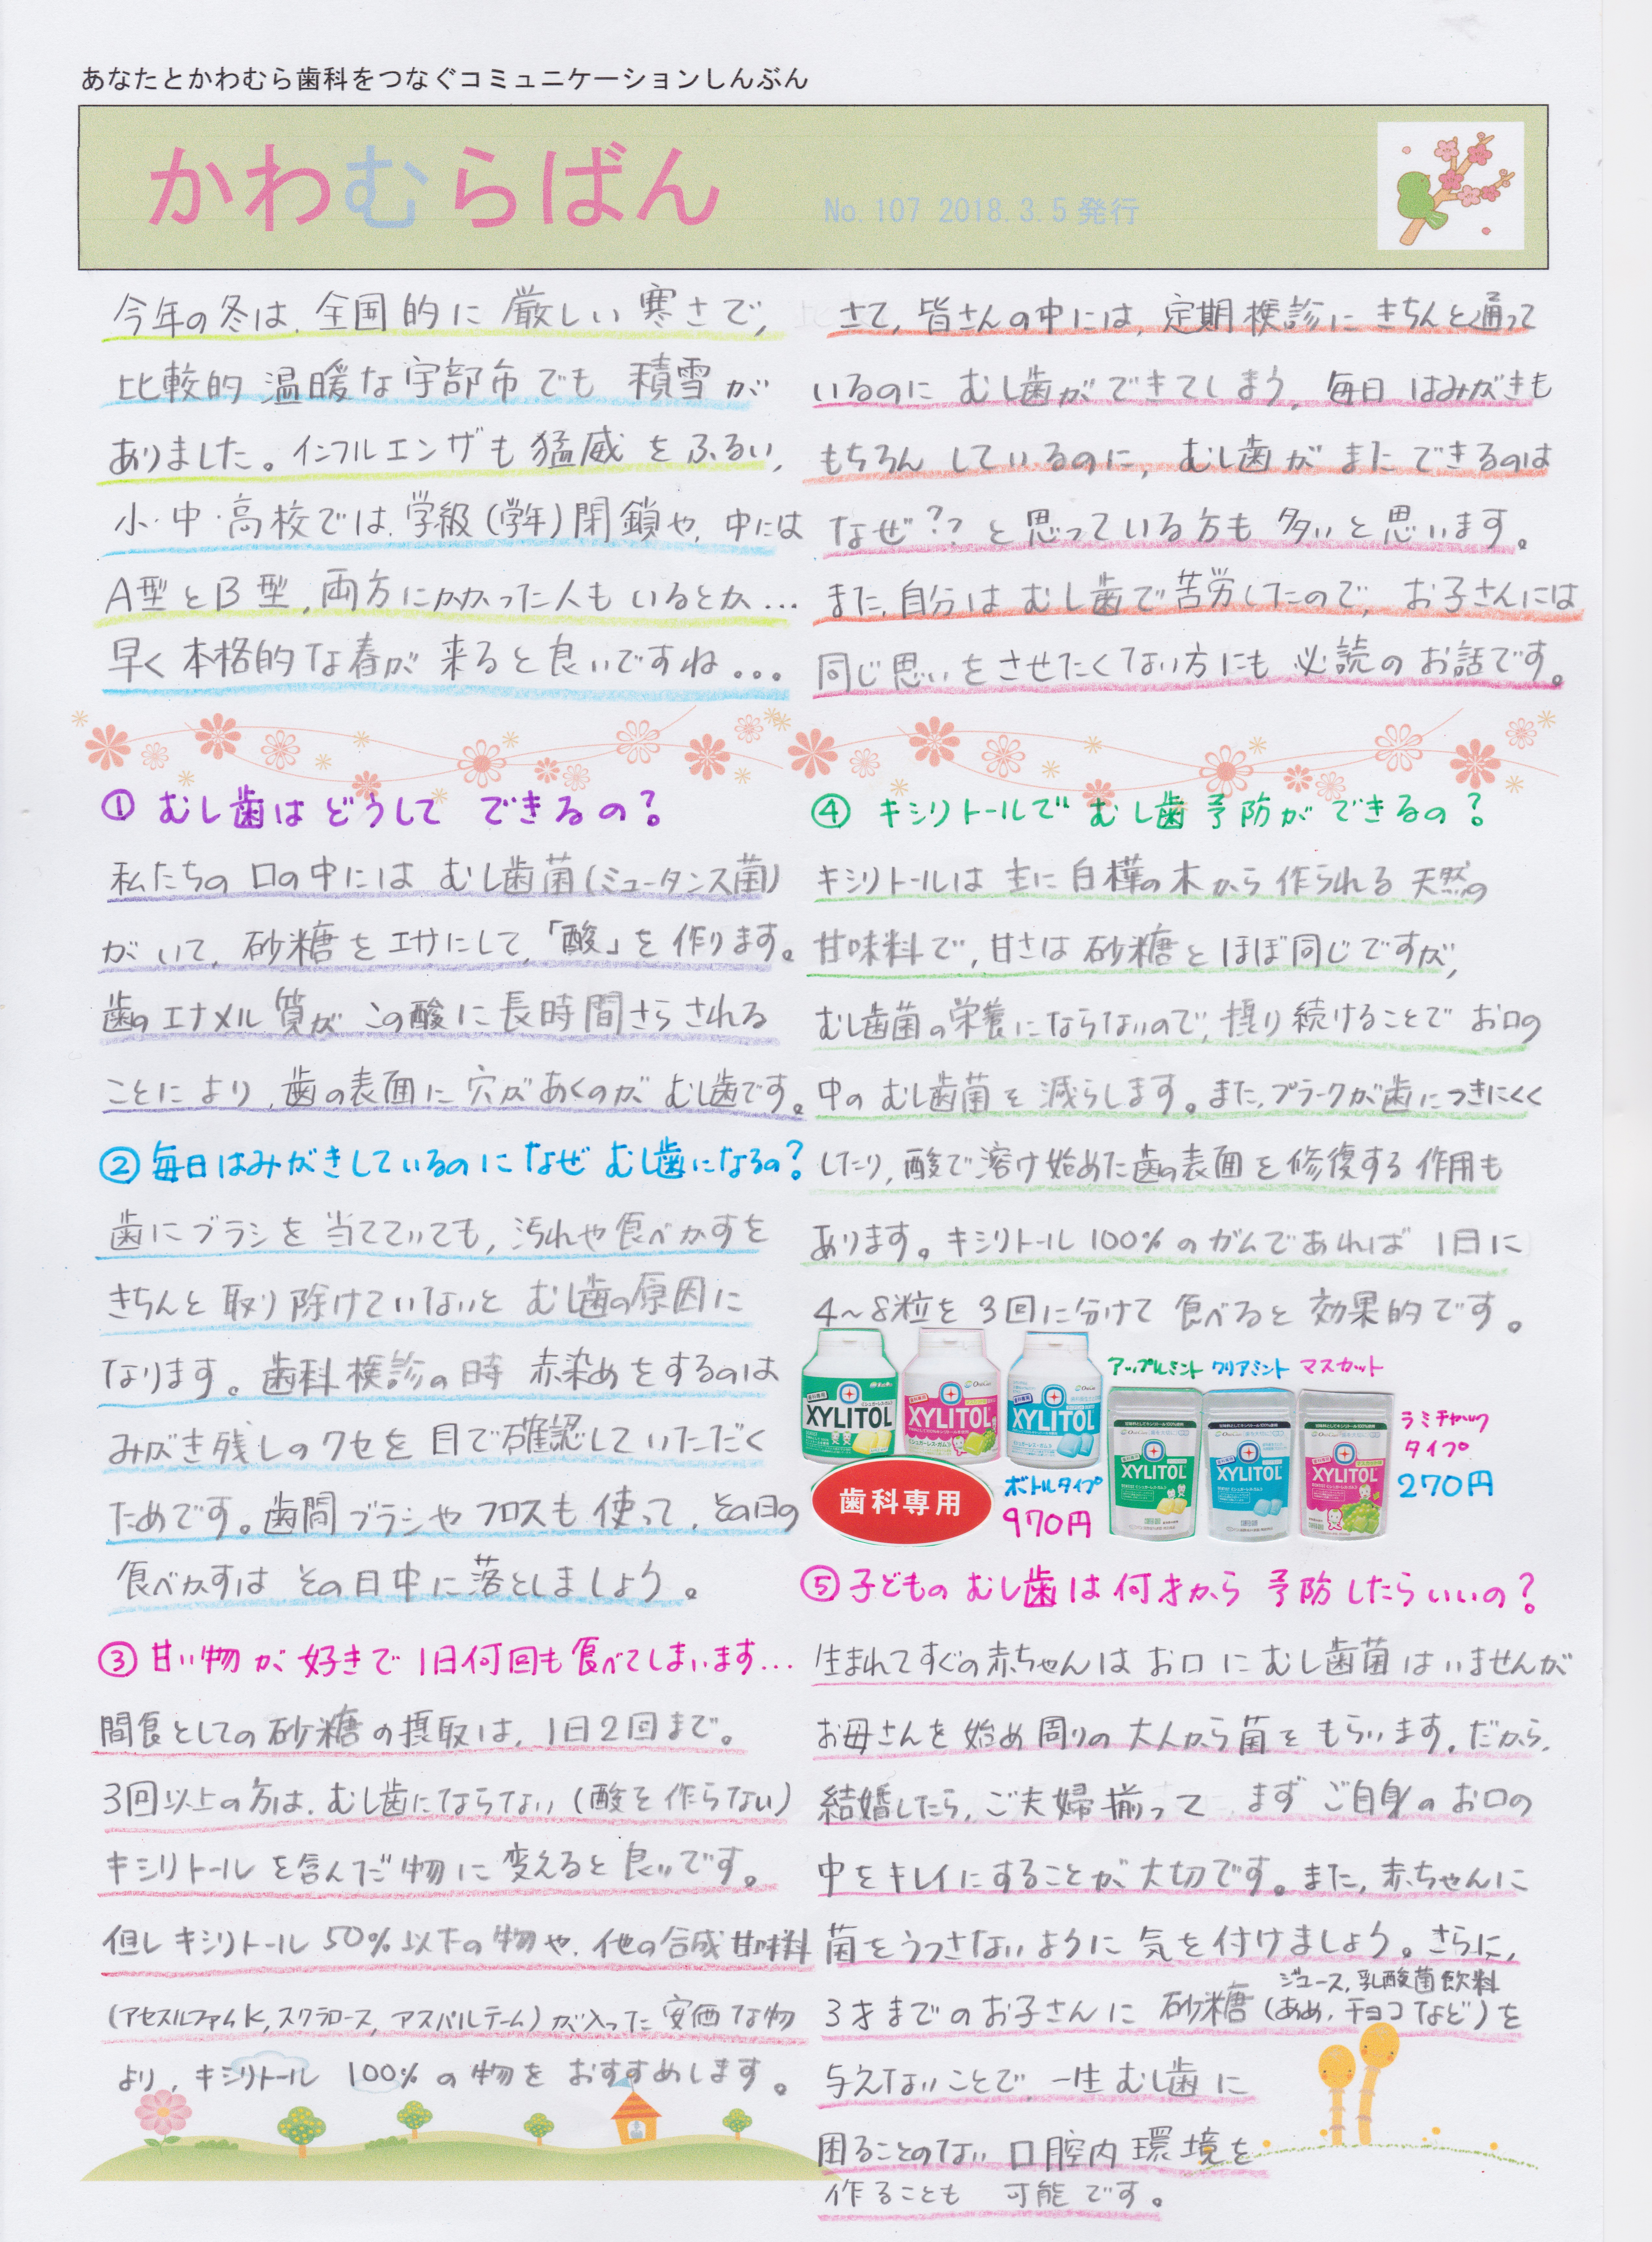 あなたとかわむら歯科をつなぐコミュニケーションしんぶん
かわむらばん
No.107 2018.3.5発行
今年の冬は、全国的に厳しい寒さで、
比較的温暖な宇部市でも積雪が
ありました。インフルエンザも猛威をふるい、
小・中・高校では、学級(学年)閉鎖や、中には
A型とB型、両方にかかった人もいるとか…
早く本格的な春が来ると良いですね...
さて、皆さんの中には、定期検診にきちんと通って
いるのにむし歯ができてしまう、毎日はみがきも
もちろんしているのに、むし歯がまたできるのは
なぜ??と思っている方も多いと思います。
また、自分はむし歯で苦労したので、お子さんには
同じ思いをさせたくない方にも必読のお話です。
①むし歯はどうしてできるの?
私たちの口の中にはむし歯菌(ミュータンス菌)
がいて、砂糖をエサにして、「酸」を作ります。
歯のエナメル質がこの酸に長時間さらされる
ことにより、歯の表面に穴があくのがむし歯です。
②毎日はみがきしているのになぜむし歯になるの?
歯にブラシを当てていても、汚れや食べかすを
きちんと取り除けていないとむし歯の原因に
なります。歯科検診の時赤染めをするのは
みがき残しのクセを目で確認していただく
ためです。歯間ブラシやフロスも使って、その日の
食べかすはその日中に落としましょう。
③甘い物が好きで1日何回も食べてしまいます…
間食としての砂糖の摂取は、1日2回まで。
3回以上の方は、むし歯にならない(酸を作らない)
キシリトールを含んだ物に変えると良いです。
但しキシリトール50%以下の物や、他の合成甘味料
(アセスルファムK,スクラロース,アスパルテーム)が入った安価な物
より、キシリトール100%の物をおすすめします。
④キシリトールでむし歯予防ができるの?
キシリトールは主に白樺の木から作られる天然の
甘味料で、甘さは砂糖とほぼ同じですが、
むし歯菌の栄養にならないので、摂り続けることでお口の
中のむし歯菌を減らします。また、プラークが歯につきにくく
したり、酸で溶け始めた歯の表面を修復する作用も
あります。キシリトール100%のガムであれば1日に
4~8粒を3回に分けて食べると効果的です。
アップルミント クリアミント マスカット
XYLITOL XYLITOL XYLITOL
XYLITOL XYLITOL XYLITOL
ラミチャック
タイプ
270円
歯科専用
ボトルタイプ
970円
⑤子どものむし歯は何才から予防したらいいの?
生まれてすぐの赤ちゃんはお口にむし歯菌はいませんが
お母さんを始め周りの大人から菌をもらいます。だから、
結婚したら、ご夫婦揃ってまずご自身のお口の
中をキレイにすることが大切です。また、赤ちゃんに
菌をうつさないように気を付けましょう。さらに、
ジュース,乳酸菌飲料
3才までのお子さんに砂糖(あめ,チョコなど)を
与えないことで、一生むし歯に
困ることのない口腔内環境を
作ることも可能です。